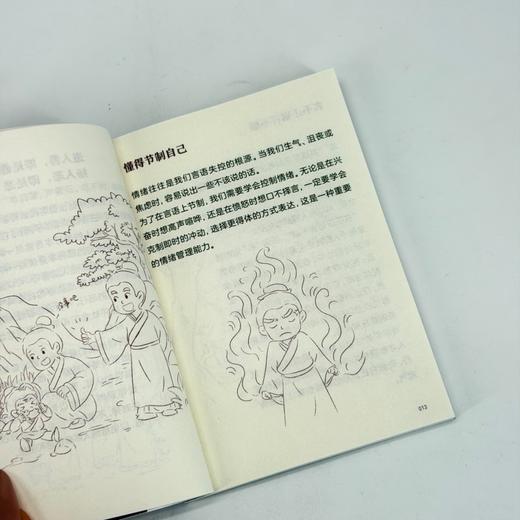 没事吧
懂得节制自己
情绪往往是我们言语失控的根源。当我们生气、沮丧或
焦虑时，容易说出一些不该说的话。
为了在言语上节制，我们需要学会控制情绪。无论是在兴
奋时想高声喧哗，还是在愤怒时想口不择言，一定要学会
克制即时的冲动，选择更得体的方式表达，这是一种重要
的情绪管理能力。
013